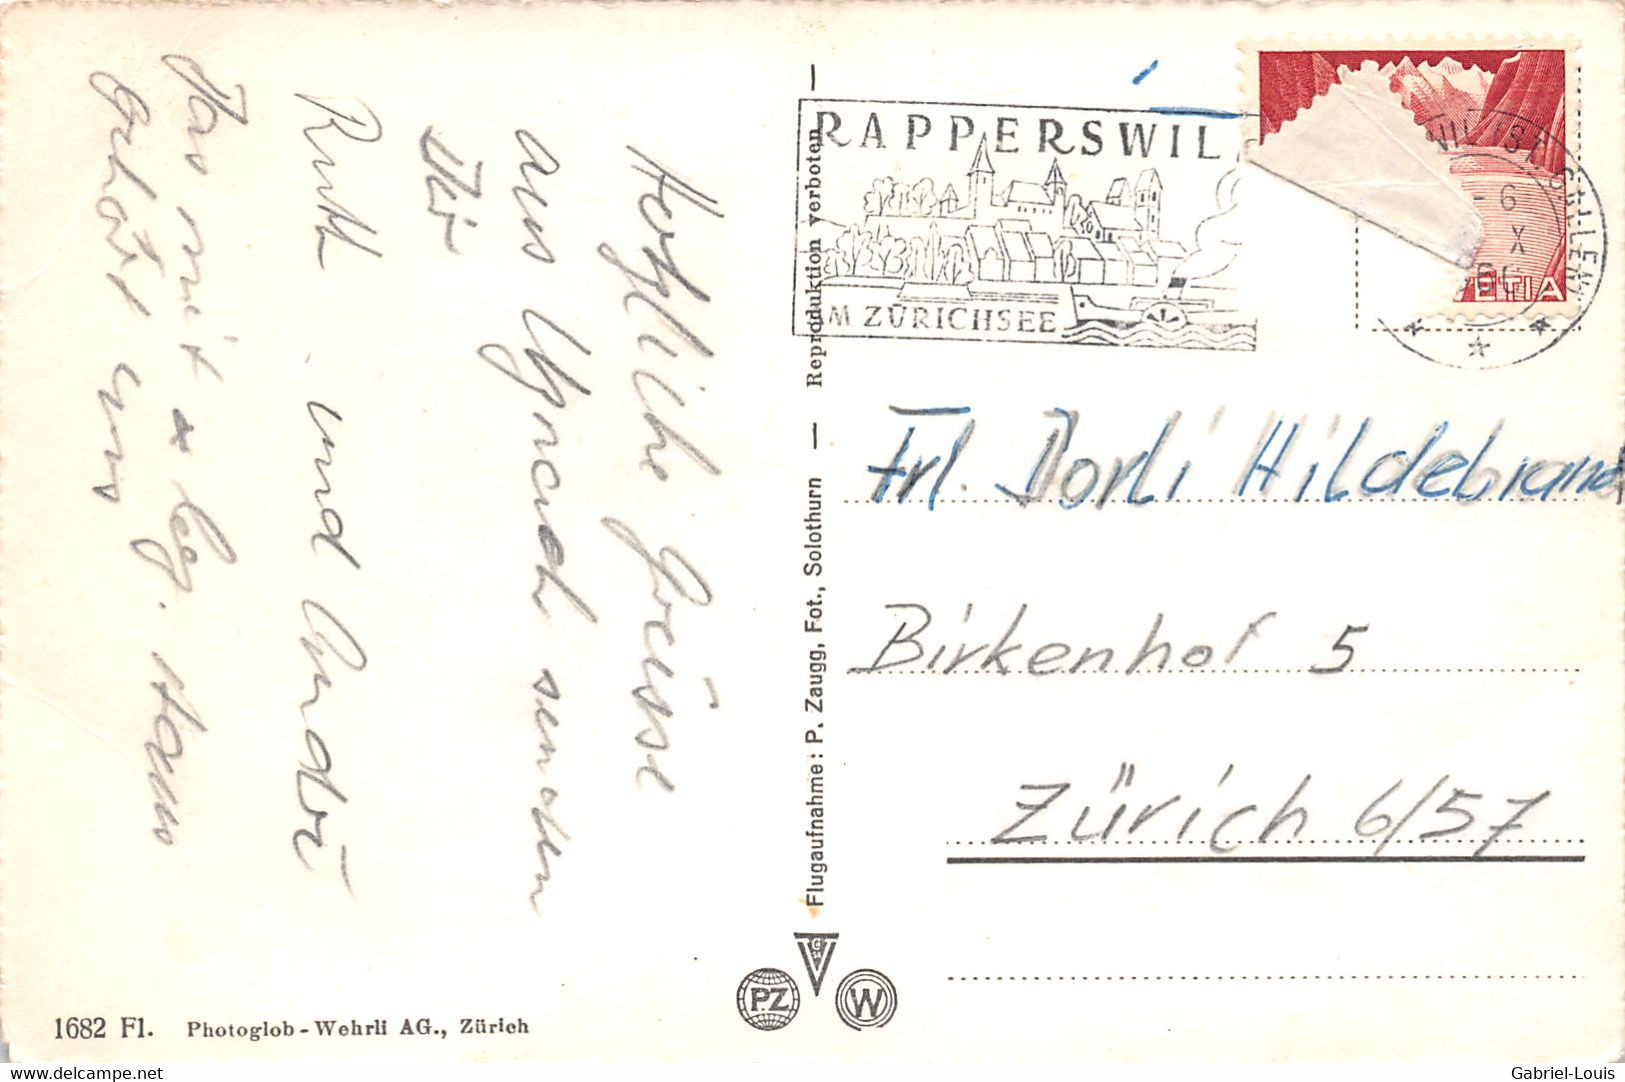 Herzliche Grüsse
aus Uznach senden
Dir
Ruth und
Das mit
gehört uns
1682 Fl. Photoglob-Wehrli AG., Zürich
Flugaufnahme: P. Zaugg, Fot., Solothurn — Reproduktion verboten —
PZ
W
RAPPERSWIL
AM ZÜRICHSEE
(ST. GALLEN)
6
X
ETIA
Frl. Dorli Hildebrand
Birkenhof 5
Zürich 6/57
delcampe.net
Gabriel-Louis